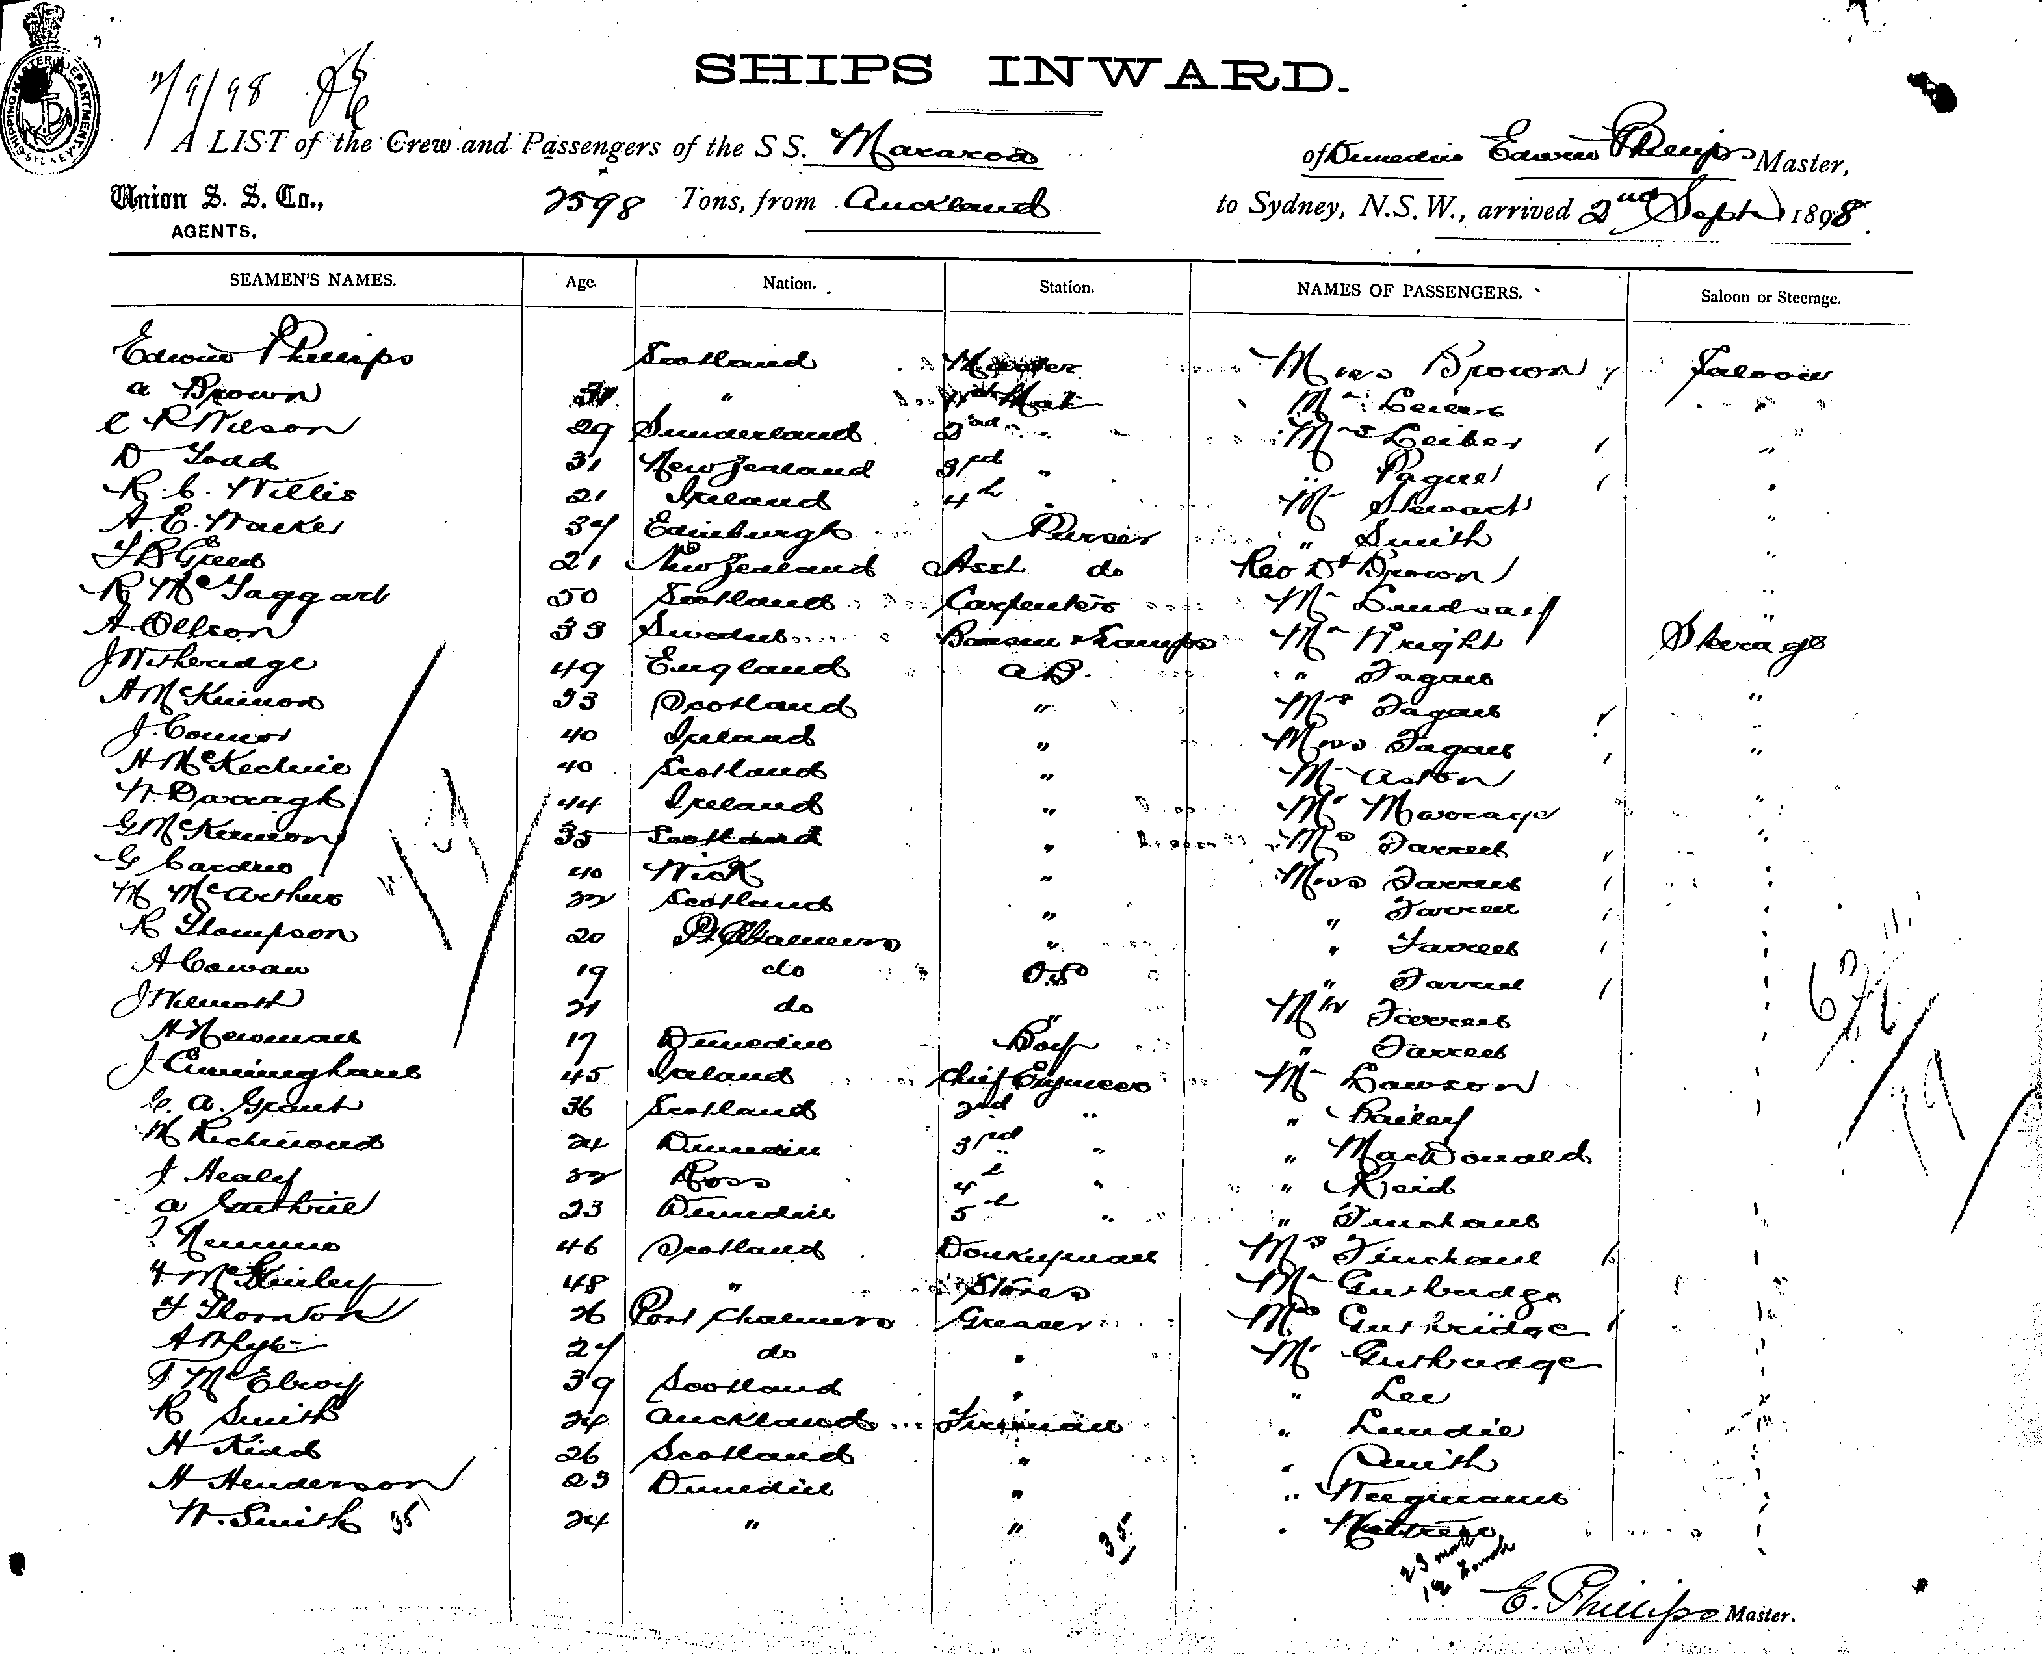 2/9/98
SHIPS INWARD.
A LIST of the Crew and Passengers of the S S. Mararoa of Dunedin Edwin Phillips Master,
Union S. S. Co., 2598 Tons, from Auckland to Sydney, N.S.W., arrived 2nd Sept 1898.
AGENTS.
SEAMEN'S NAMES. Age. Nation. Station. NAMES OF PASSENGERS. Saloon or Steerage.
Edwin Phillips Scotland Master Miss Brown Saloon
A Brown " 1st Mate Mr "
C R Wilson 29 Sunderland 2nd " Mrs "
D Todd 31 New Zealand 3rd " " "
R. C. Willis 21 Ireland 4th " Mr Stewart "
A. E. Walker 37 Edinburgh Purser " Smith "
Greed 21 New Zealand Asst do Rev Dr Brown "
R McTaggart 50 Scotland Carpenter Mr "
A Ollson 33 Sweden Bosun & Lamps Mr Wright Steerage
J Witheridge 49 England A.B. " Fagan
A McKinnon 33 Scotland " Mrs Fagan "
J. Connor 40 Ireland " Miss Fagan "
A McKechnie 40 Scotland " Mr Aston
W. Darragh 44 Ireland " Mr "
G McKinnon 35 Scotland " Mrs Farrell "
G 40 Wick " Miss Farrell "
M McArthur 22 Scotland " " Farrell
R Thompson 20 Pt Chalmers " " Farrell
A Cowan 19 do O.S " Farrell
J Wilmoth 21 do " Mr Farrell
A Newman 17 Dunedin Boy " Farrell
J Cunningham 45 Ireland Chief Engineer Mr Lawson
G. A. Grant 36 Scotland 2nd " " Bailey
M Richmond 24 Dunedin 3rd " " MacDonald
J Healy 22 Ross 4th " " Reid
A Guthrie 23 Dunedin 5th " " Fincham
46 Scotland Donkeyman Mrs Fincham
McKinley 48 " Stores Mr Gutbridge
F Thornton 26 Port Chalmers Greaser Mrs Gutbridge
A Whyte 27 do " Mr Gutbridge
F McElroy 39 Scotland " " Lee
R Smith 24 Auckland Fireman " Lundie
H Kidd 26 Scotland " " Smith
H Henderson 23 Dunedin " " Wiegmann
W. Smith 35 24 " " "
35
23 male
E. Phillips Master.